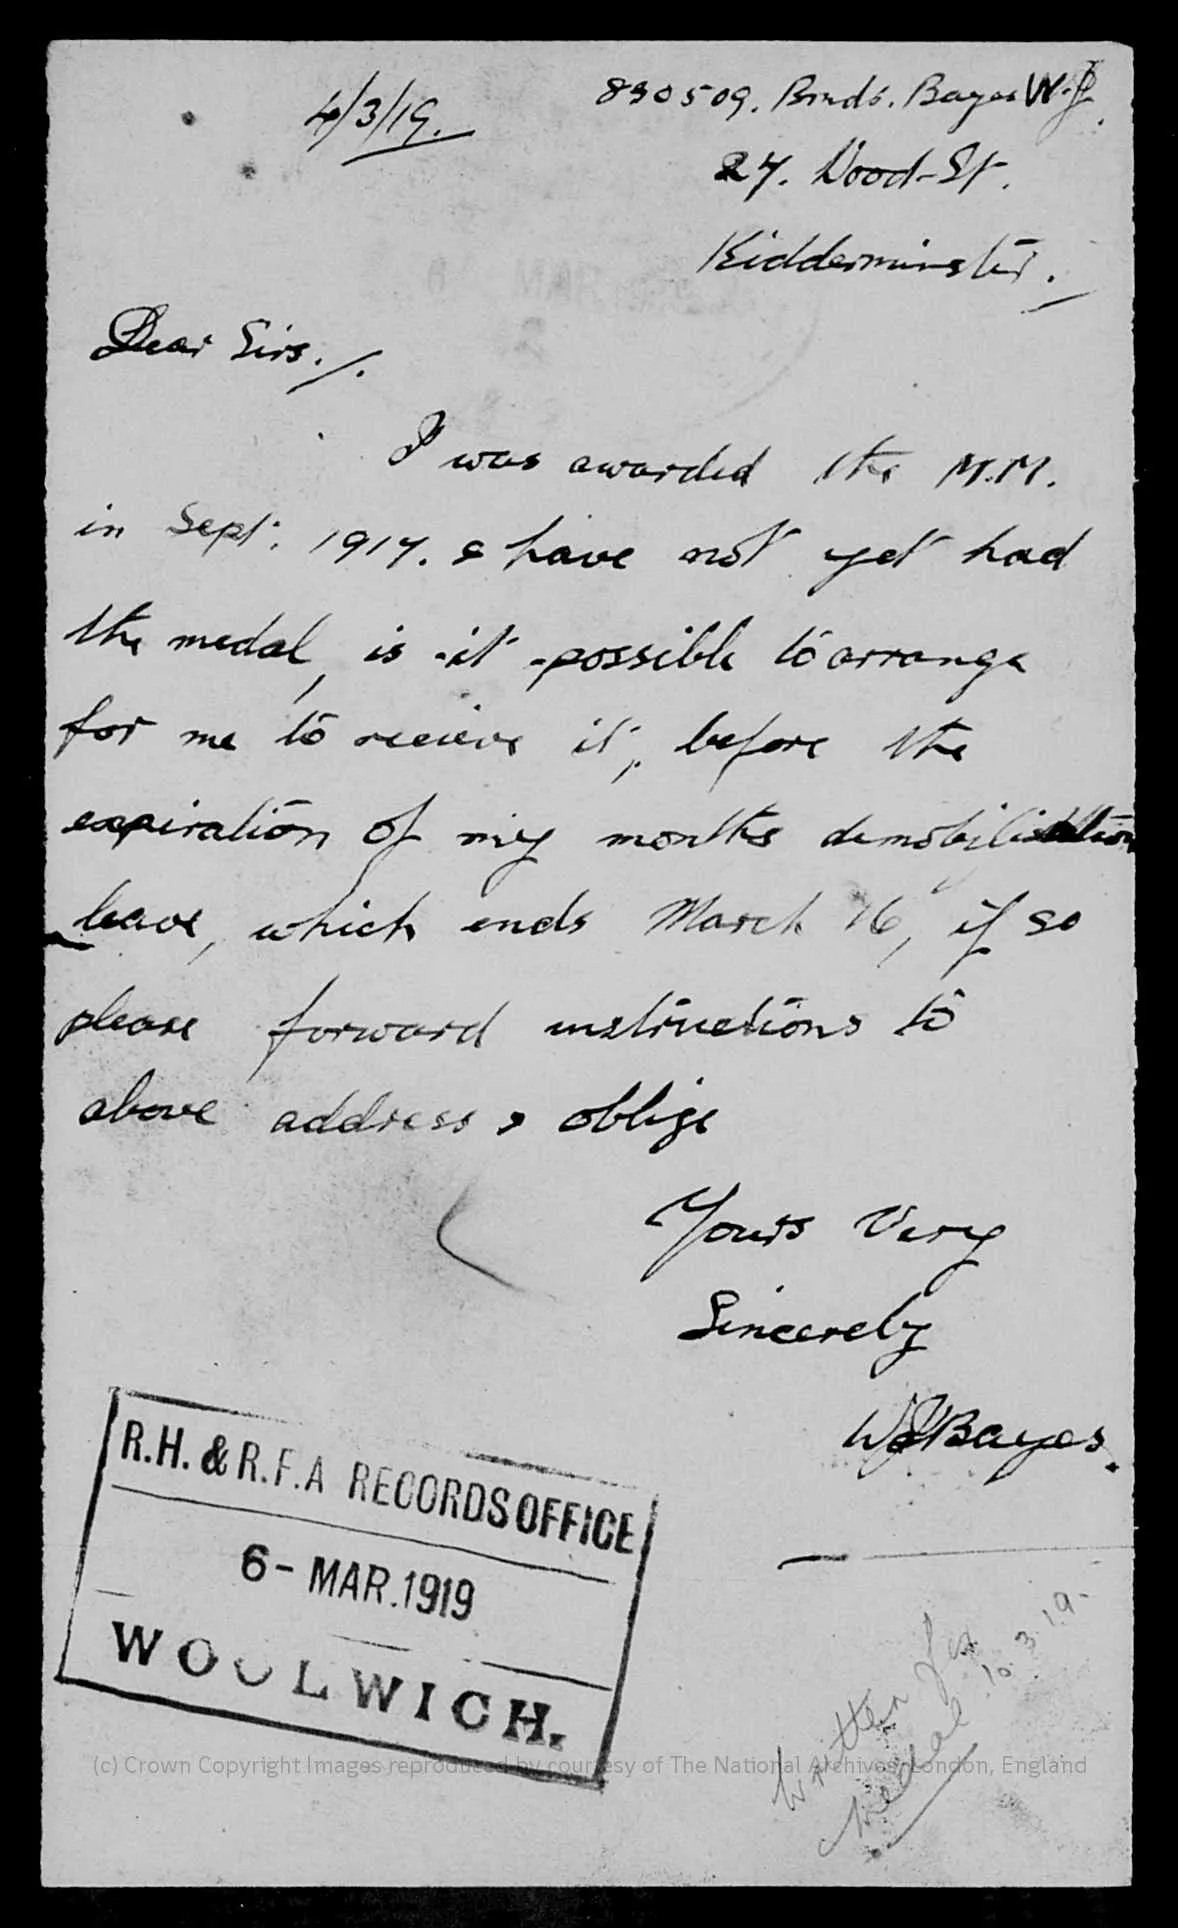 4/3/19.
830509. Bmdr. Bayes W.J.
27. Wood-St.
Kidderminster.
Dear Sirs./.
I was awarded the M.M.
in Sept. 1917. & have not yet had
the medal, is it possible to arrange
for me to recieve it, before the
expiration of my months demobilisation
leave, which ends March 16, if so
please forward instructions to
above address & oblige
Yours Very
Sincerely
WJBayes.
R.H. & R.F.A RECORDS OFFICE
6 - MAR. 1919
WOOLWICH.
written for
medal 10.3.19-
(c) Crown Copyright Images reproduced by courtesy of The National Archives, London, England